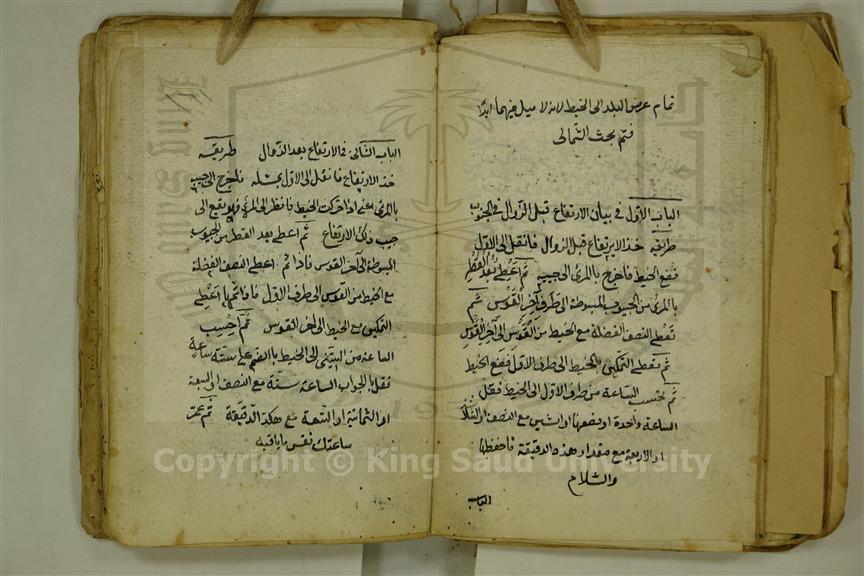 تمام عرض البلد الى الخيط لانه لا ميل فيهما ابدًا
فتم بحث الشمالى
الباب الاول فى بيان الارتفاع قبل الزوال فى الجنوب
طريقه خذ الارتفاع قبل الزوال فانقل الى الاول
فضع الخيط فاخرج بالمرى الى جيب ثم اعطى بعد القطر
بالمرى من الجيوب المبسوطة الى طرف اخر القوس ثم
تعطى النصف الفضلة مع الخيط من القوس الى آخر القوس
ثم تعطى التمكين بالخيط الى طرف الاول فضع الخيط
ثم تحسب الساعة من طرف الاول الى الخيط فقل
الساعة واحدة او نصفها او اثنين مع النصف او الثلاثة
او الاربعة مع مقدار هذه الدقيقة فاحفظها
والسلام
الباب
الباب الثانى فى الارتفاع بعد الزوال طريقه
خذ الارتفاع فانقل الى الاول بمثله فاخرج الى جيب
بالمرى اذا حركت الخيط فانظر الى المرى فهو يقع الى
جيب ذلك الارتفاع ثم اعطى بعد القطر من الجيوب
المبسوطة الى آخر القوس فاذا تم اعطى النصف الفضلة
مع الخيط من القوس الى طرف الاول فاذا تم اعطى
التمكين مع الخيط الى اخر القوس ثم احسب
الساعة من الستينى الى الخيط بالضم على ستة ساعة
فقل بالجواب الساعة ستة مع النصف او السبعة
او الثمانية او التسعة مع هكذا الدقيقة ثم
ساعتك
Copyright © King Saud University